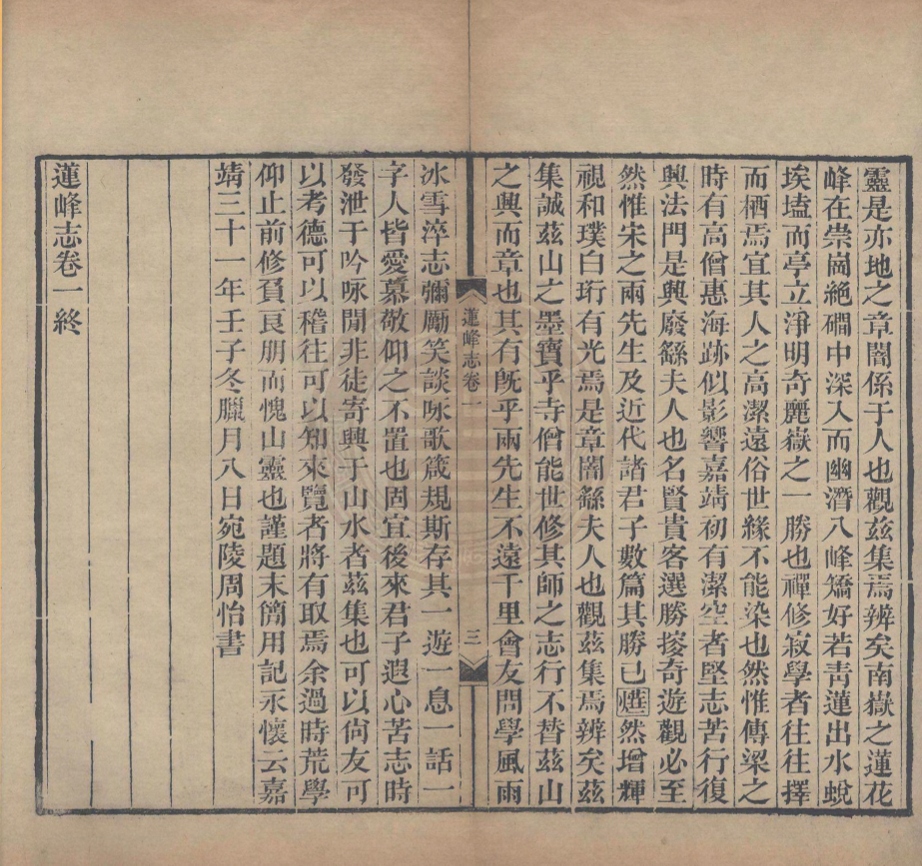 靈是亦地之章闇係于人也觀茲集焉辨矣南嶽之蓮花
峰在崇崗絶磵中深入而幽潛八峰矯好若靑蓮出水蛻
埃壒而亭立淨明奇麗嶽之一勝也禪修寂學者往往擇
而栖焉宜其人之高潔遠俗世緣不能染也然惟傳梁之
時有高僧惠海跡似影響嘉靖初有潔空者堅志苦行復
興法門是興廢繇夫人也名賢貴客選勝搜奇遊觀必至
然惟宋之兩先生及近代諸君子數篇其勝已然增輝
視和璞白珩有光焉是章闇繇夫人也觀茲集焉辨矣茲
集誠茲山之墨寶乎寺僧能世修其師之志行不替茲山
之興而章也其有旣乎兩先生不遠千里會友問學風雨
蓮峰志卷一
三
冰雪淬志彌勵笑談咏歌箴規斯存其一遊一息一話一
字人皆愛慕敬仰之不置也固宜後來君子遐心苦志時
發泄于吟咏閒非徒寄興于山水者茲集也可以尙友可
以考德可以稽往可以知來覽者將有取焉余過時荒學
仰止前修負良朋而愧山靈也謹題末簡用記永懷云嘉
靖三十一年壬子冬臘月八日宛陵周怡書
蓮峰志卷一終